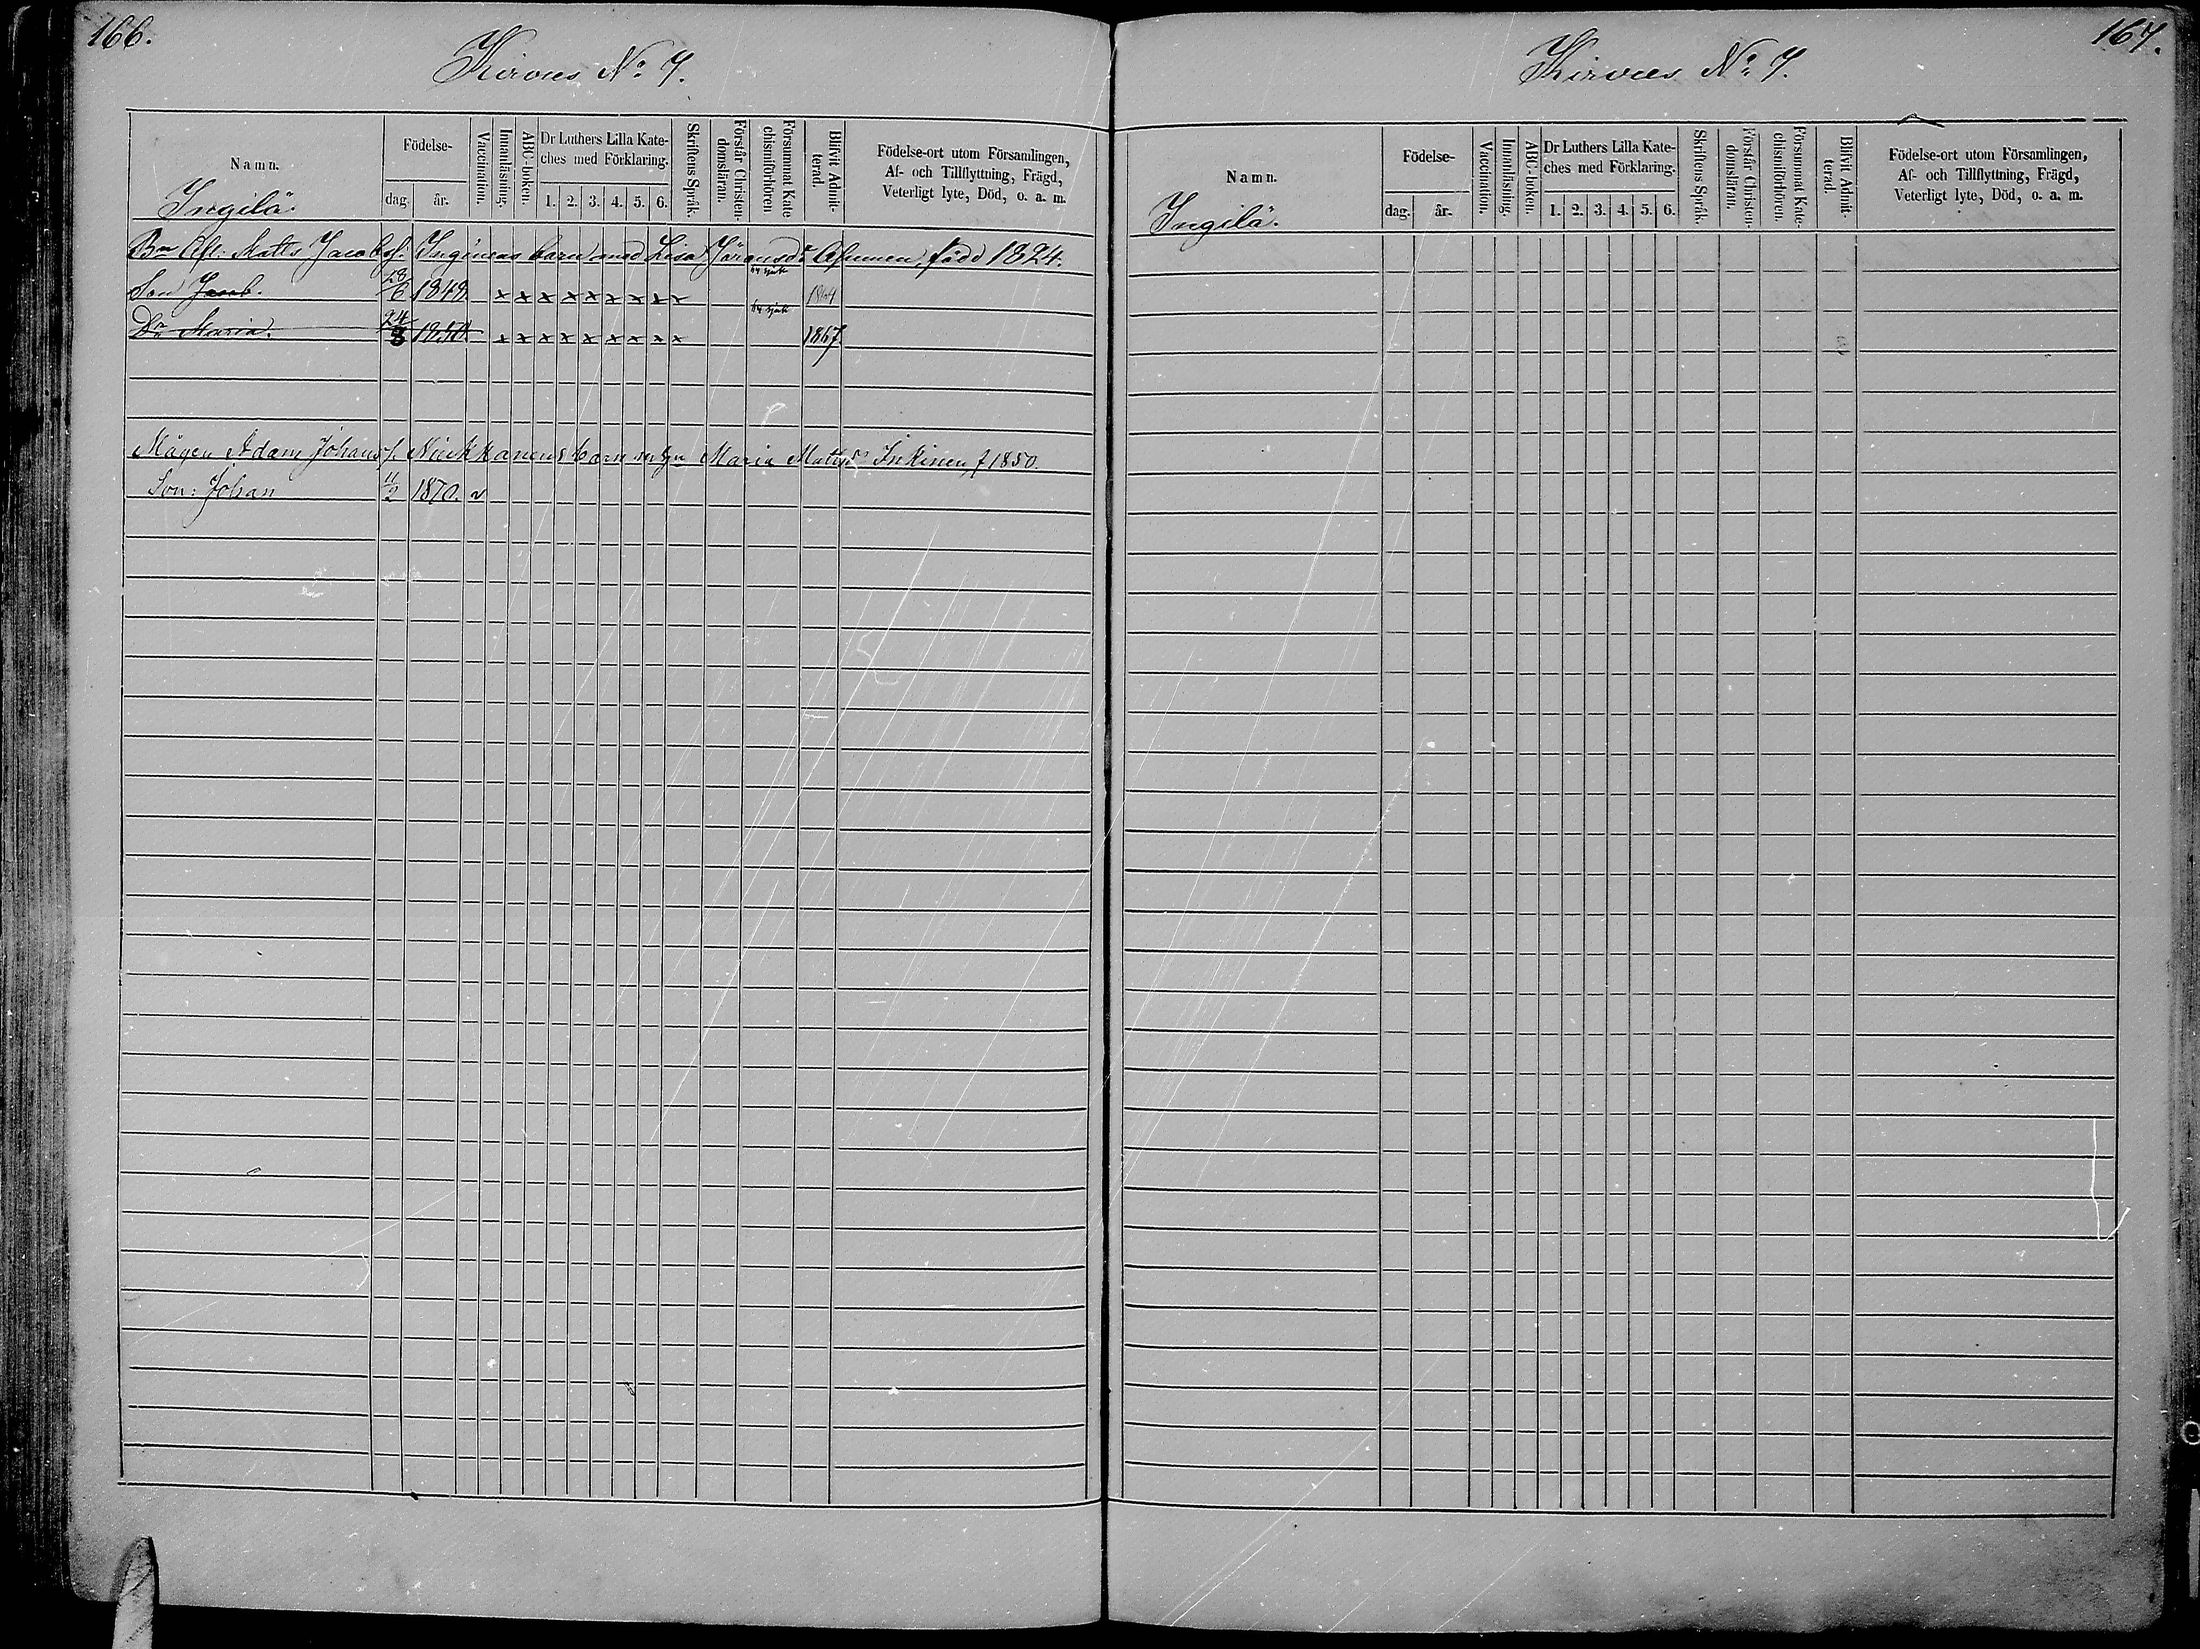 166.
Kirvus No 7.
Namn.
Födelse-
dag.
år.
Vaccination.
Innanläsning.
ABC-boken.
Dr Luthers Lilla Kate-
ches med Förklaring.
1. 2. 3. 4. 5. 6.
Skriftens Språk.
Förstår Christen-
domsläran.
Försummat Kate
chismiförhören
Blifvit Admit-
terad.
Födelse-ort utom Församlingen,
Af- och Tillflyttning, Frägd,
Veterligt lyte, Död, o. a. m.
Ingilä.
Bn Afl. Matts Jacobss: Inginens barn med Lisa Göransdr född 1824.
Son Jacob. 13/6 1848. x x x x x x x x x 1864
Dr Maria. 24/3 1850. x x x x x x x x x 1867.
Mågen Adam Johanss. Nuikkanens barn m hu Maria Mattsdr Inkinen, f 1850.
Son: Johan 11/2 1870. v
167.
Kirvus No 7.
Namn.
Födelse-
dag.
år.
Vaccination.
Innanläsning.
ABC-boken.
Dr Luthers Lilla Kate-
ches med Förklaring.
1. 2. 3. 4. 5. 6.
Skriftens Språk.
Förstår Christen-
domsläran.
Försummat Kate-
chismiförhören.
Blifvit Admit-
terad.
Födelse-ort utom Församlingen,
Af- och Tillflyttning, Frägd,
Veterligt lyte, Död, o. a. m.
Ingilä.